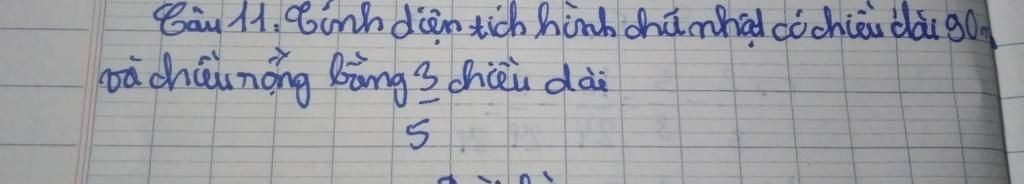 Câu 11. Tính diện tích hình chữ nhật có chiều dài 90m
và chiều rộng bằng 3/5 chiều dài